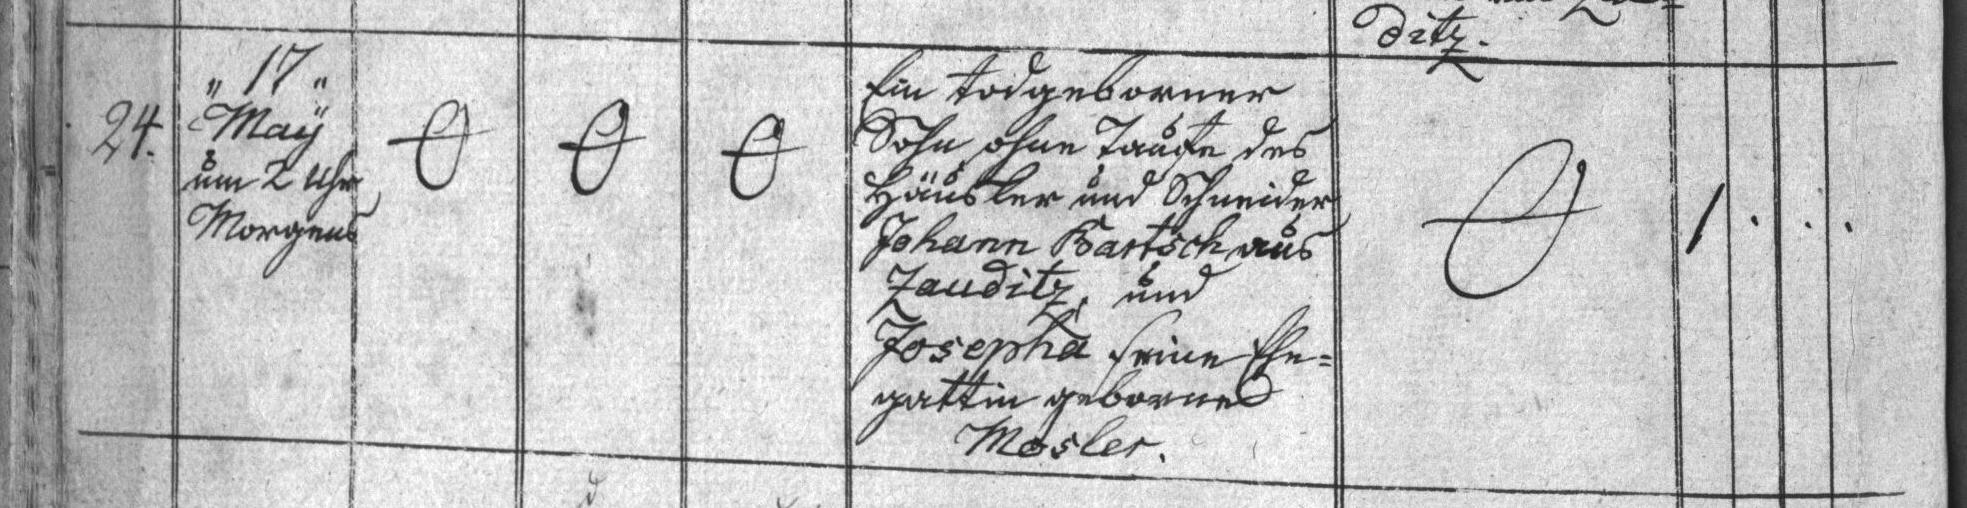 ditz.
24.
" 17 "
Maÿ
um 2 Uhr
Morgens
Ein todgeborner
Sohn ohne Taufe des
Häusler und Schneider
Johann Bartsch aus
Zauditz, und
Josepha seine Ehe=
gattin geborne
Mosler.
1